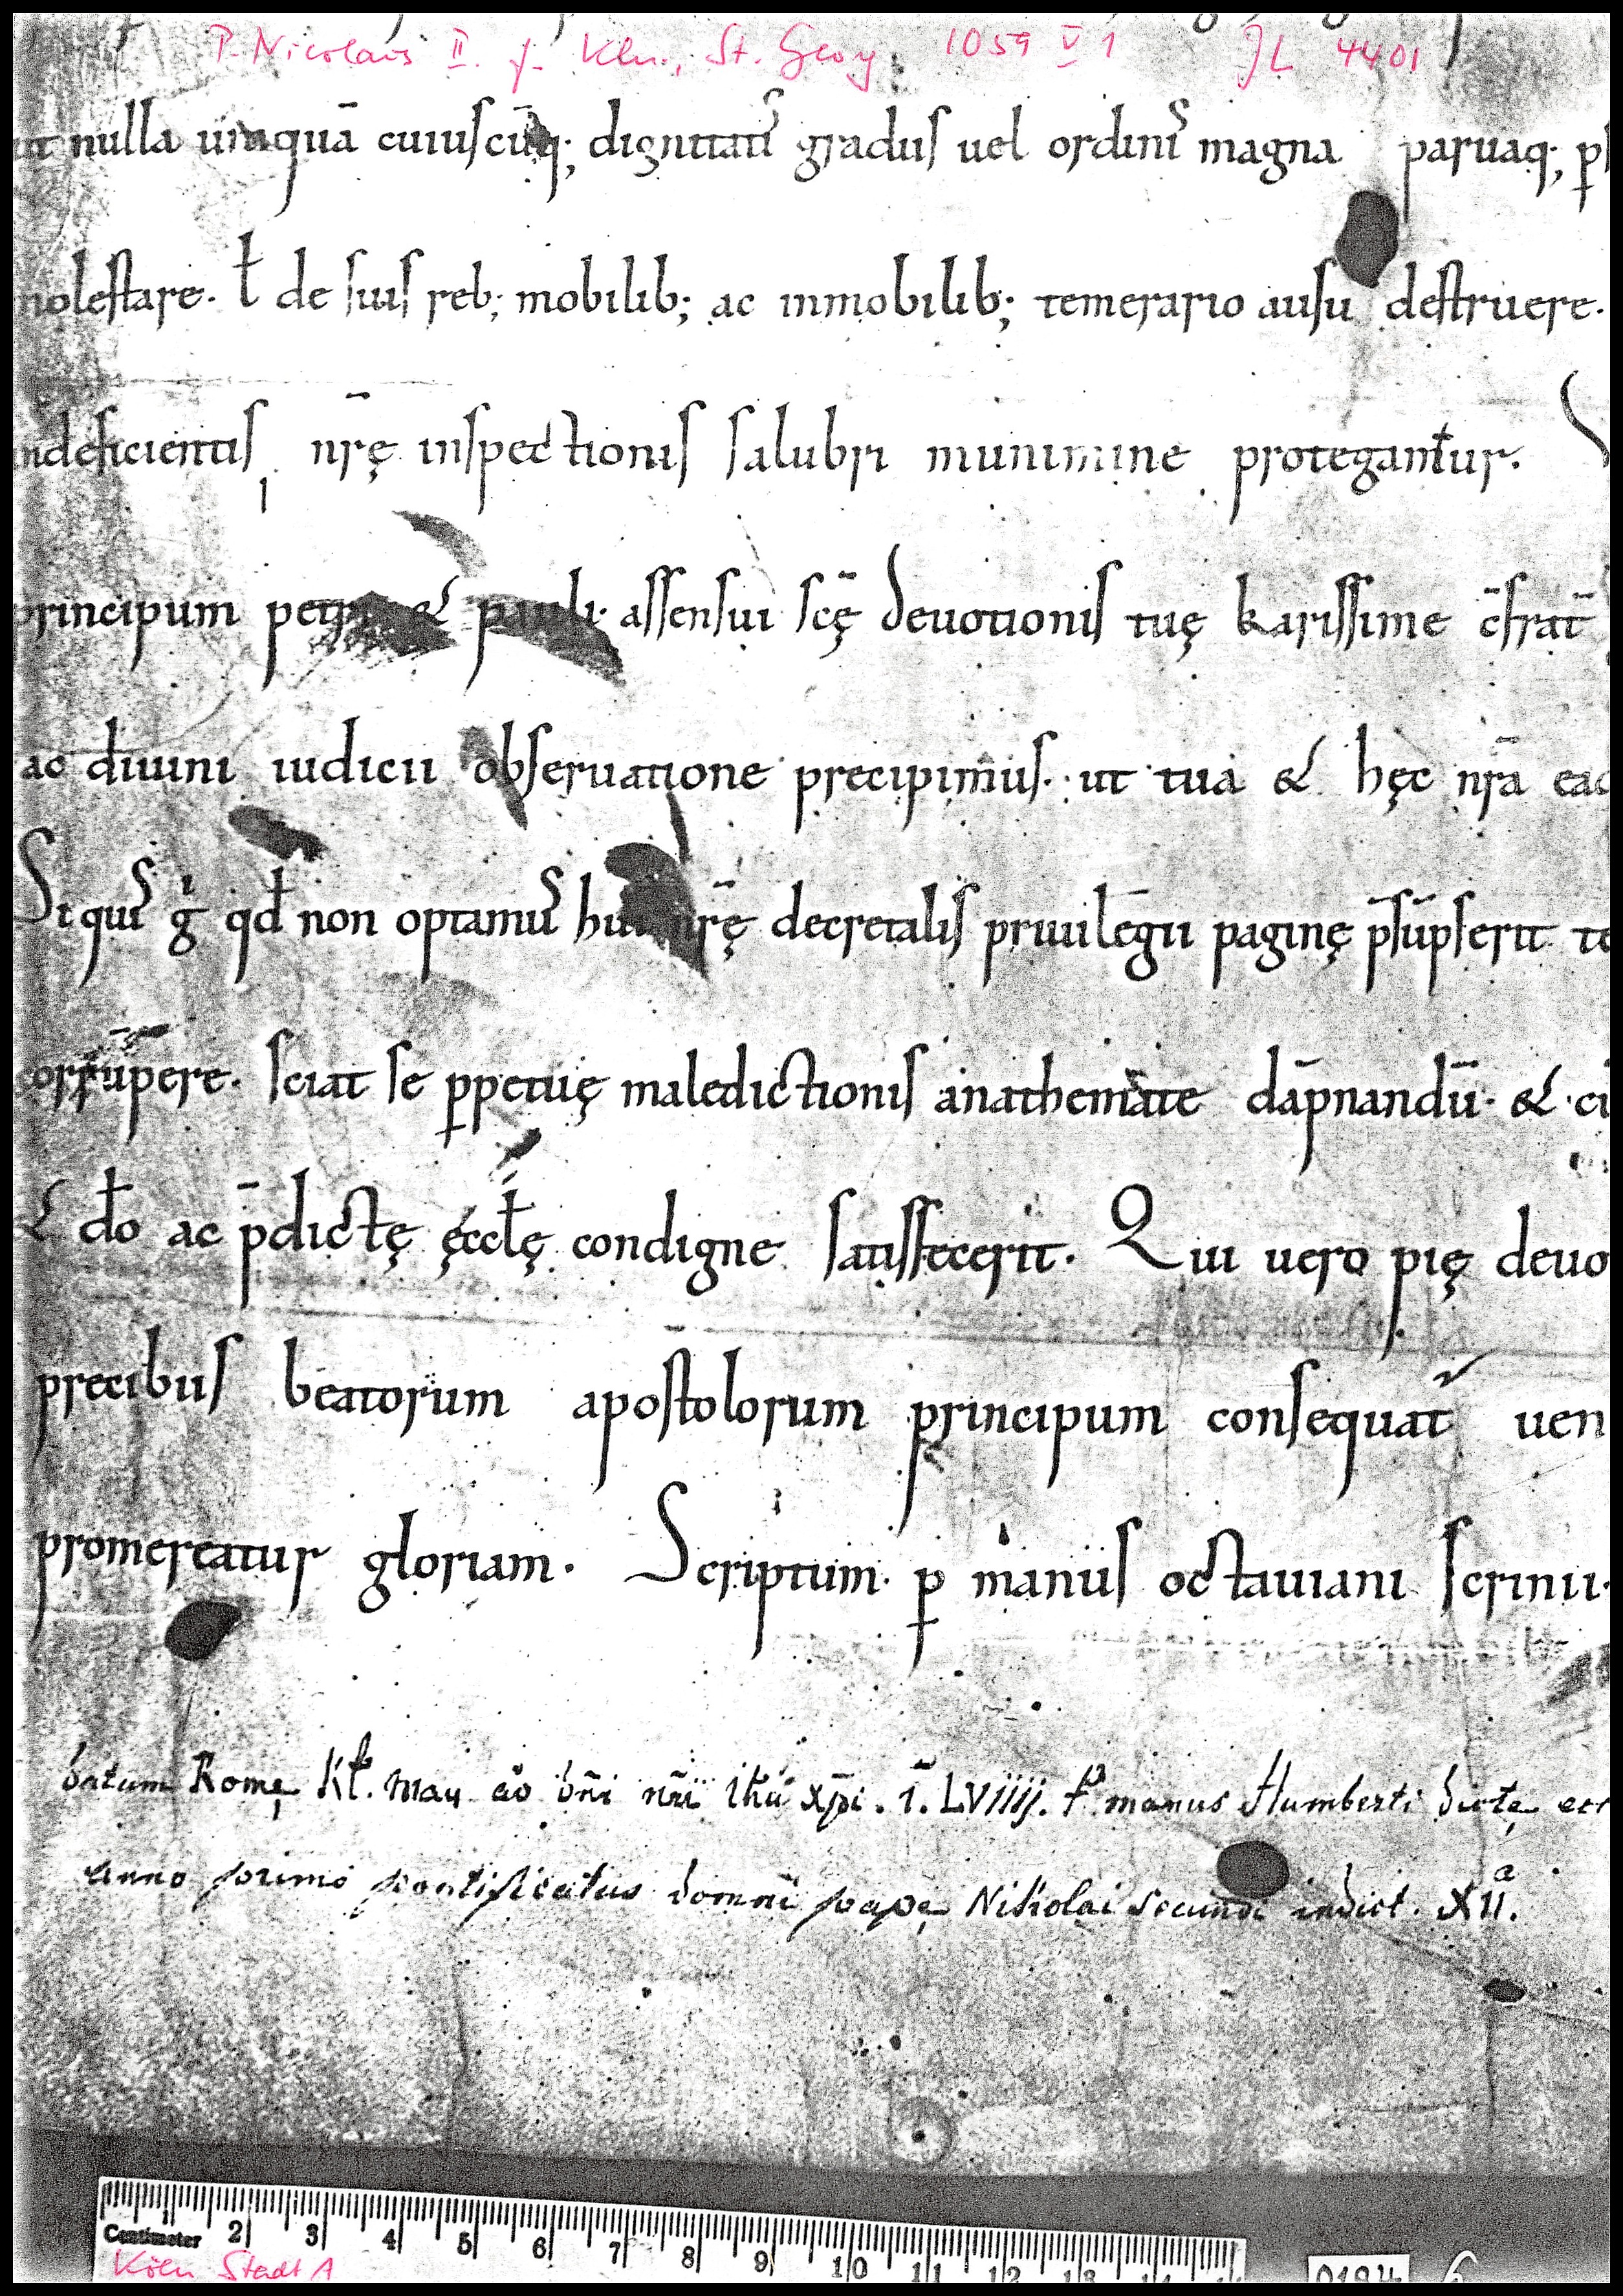 P. Nicolaus II. f. Köln, St. Georg 1059 V 1 JL 4401
ut nulla umquā cuiuscūq; dignitati᷒ gradus uel ordini᷒ magna paruaq; p
molestare. ł de suis reb; mobilib; ac inmobilib; temerario ausu destruere.
indeficientis nr̄ę inspectionis salubri munimine protegantur.
principum petri & pauli. assensui scę̄ deuotionis tuę karissime c̄frat̄
ac diuini iudicii obseruatione precipimus. ut tua & hęc nr̄a ead
Si qui᷒ g̊ qd̄ non optamu᷒ huic nr̄ę decretalis priuilegii paginę p̄sūpserit te
corrūpere. sciat se ꝑpetuę maledictionis anathemate dāpnandū. & cū
& dō ac p̄dictę ęccłę condigne satisfecerit. Qui uero pię deuo
precibus beatorum apostolorum principum consequat̄ uen
promereatur gloriam. Scriptum ꝑ manus octauiani scrinii.
Datum Romę Kł. Maii āo dn̄i nr̄i ihū xp̄i. ī. LVIIII. ꝑ manus Humberti dictę ecc
anno primo pontificatus domni papę Nikolai secundi indict. XII.ª
Centimeter 2 3 4 5 6 7 8 9 10 11 12 13 14
Köln Stadt A